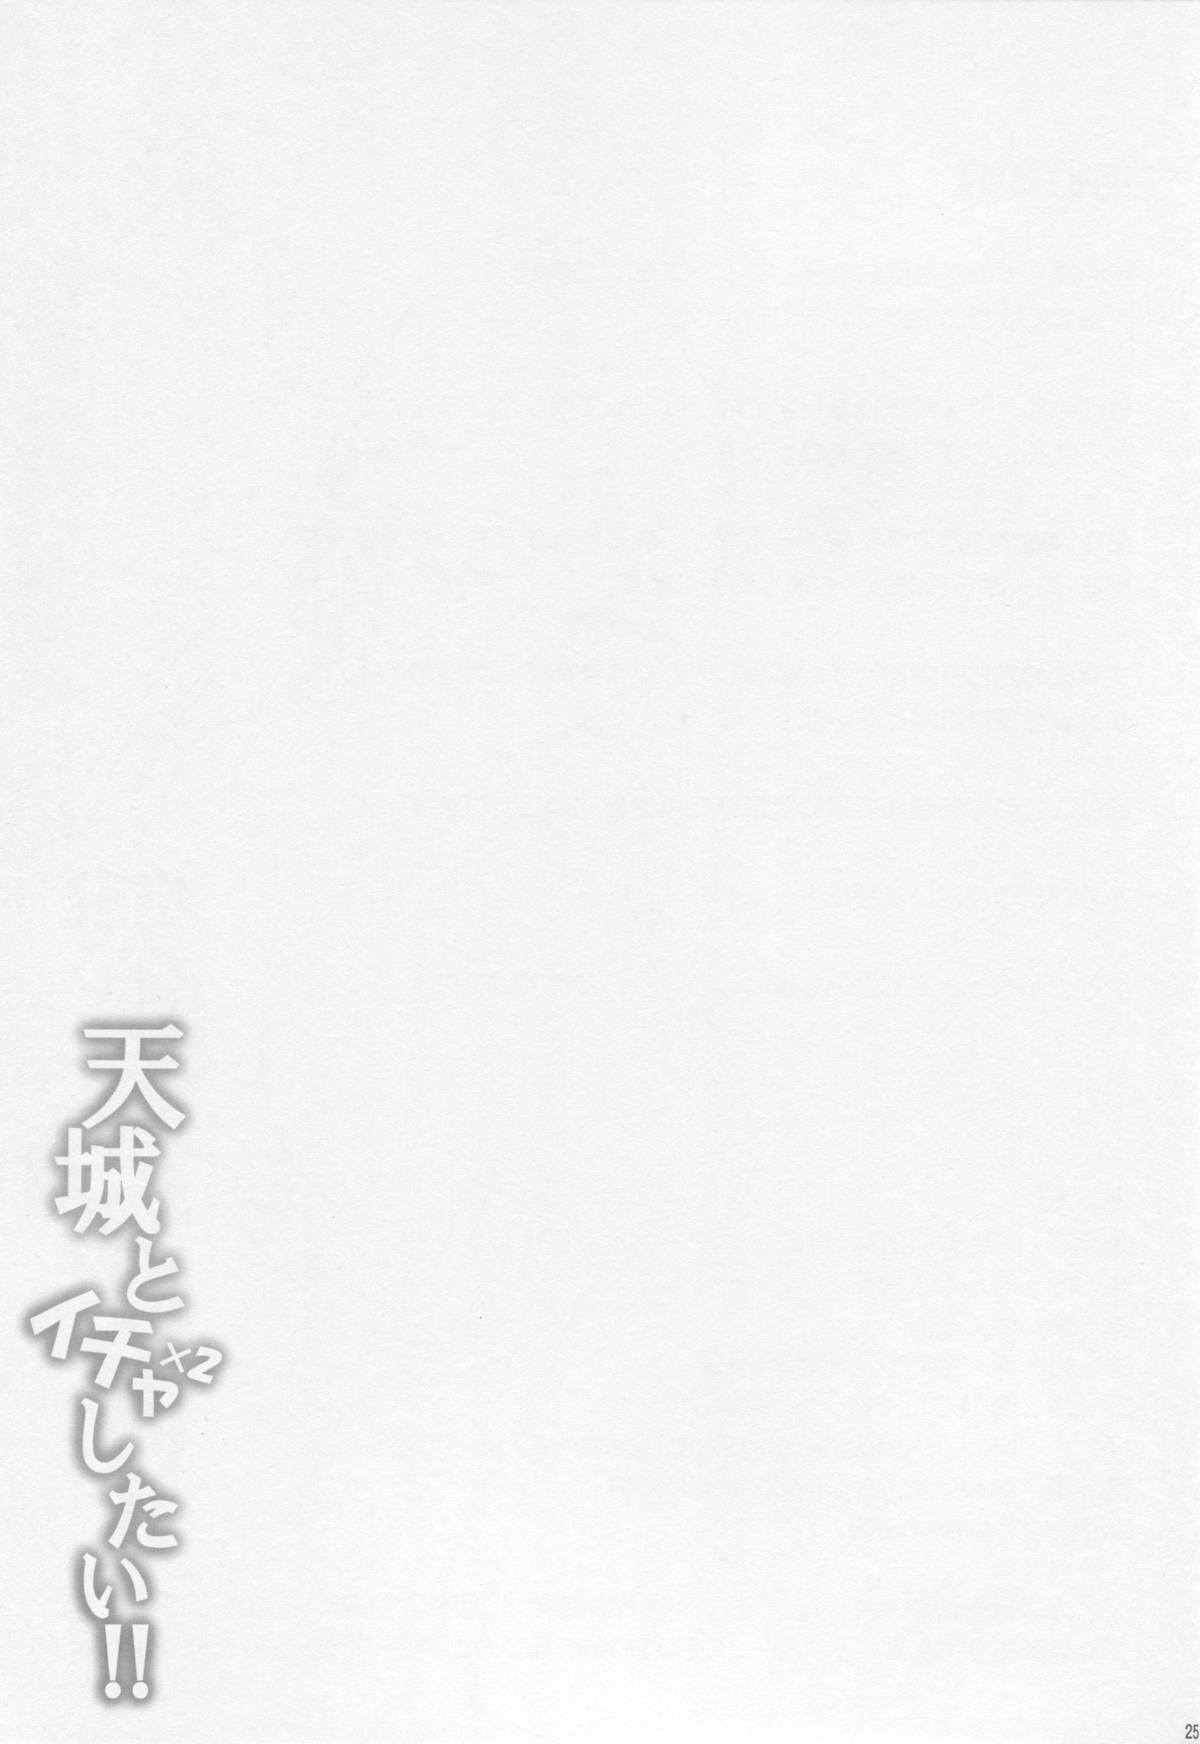 天城と
イチャ×2
したい!!
25